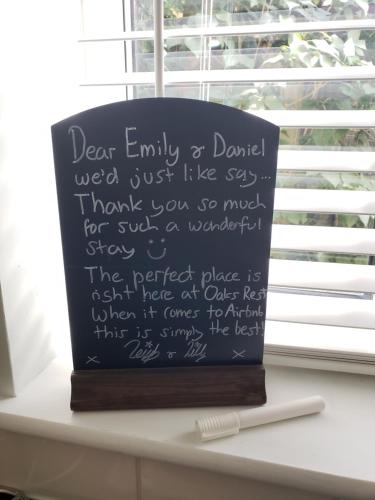 Dear Emily & Daniel
we'd just like say...
Thank you so much
for such a wonderful
stay
The perfect place is
right here at Oaks Rest
When it comes to Airbnb
this is simply the best!
x & x